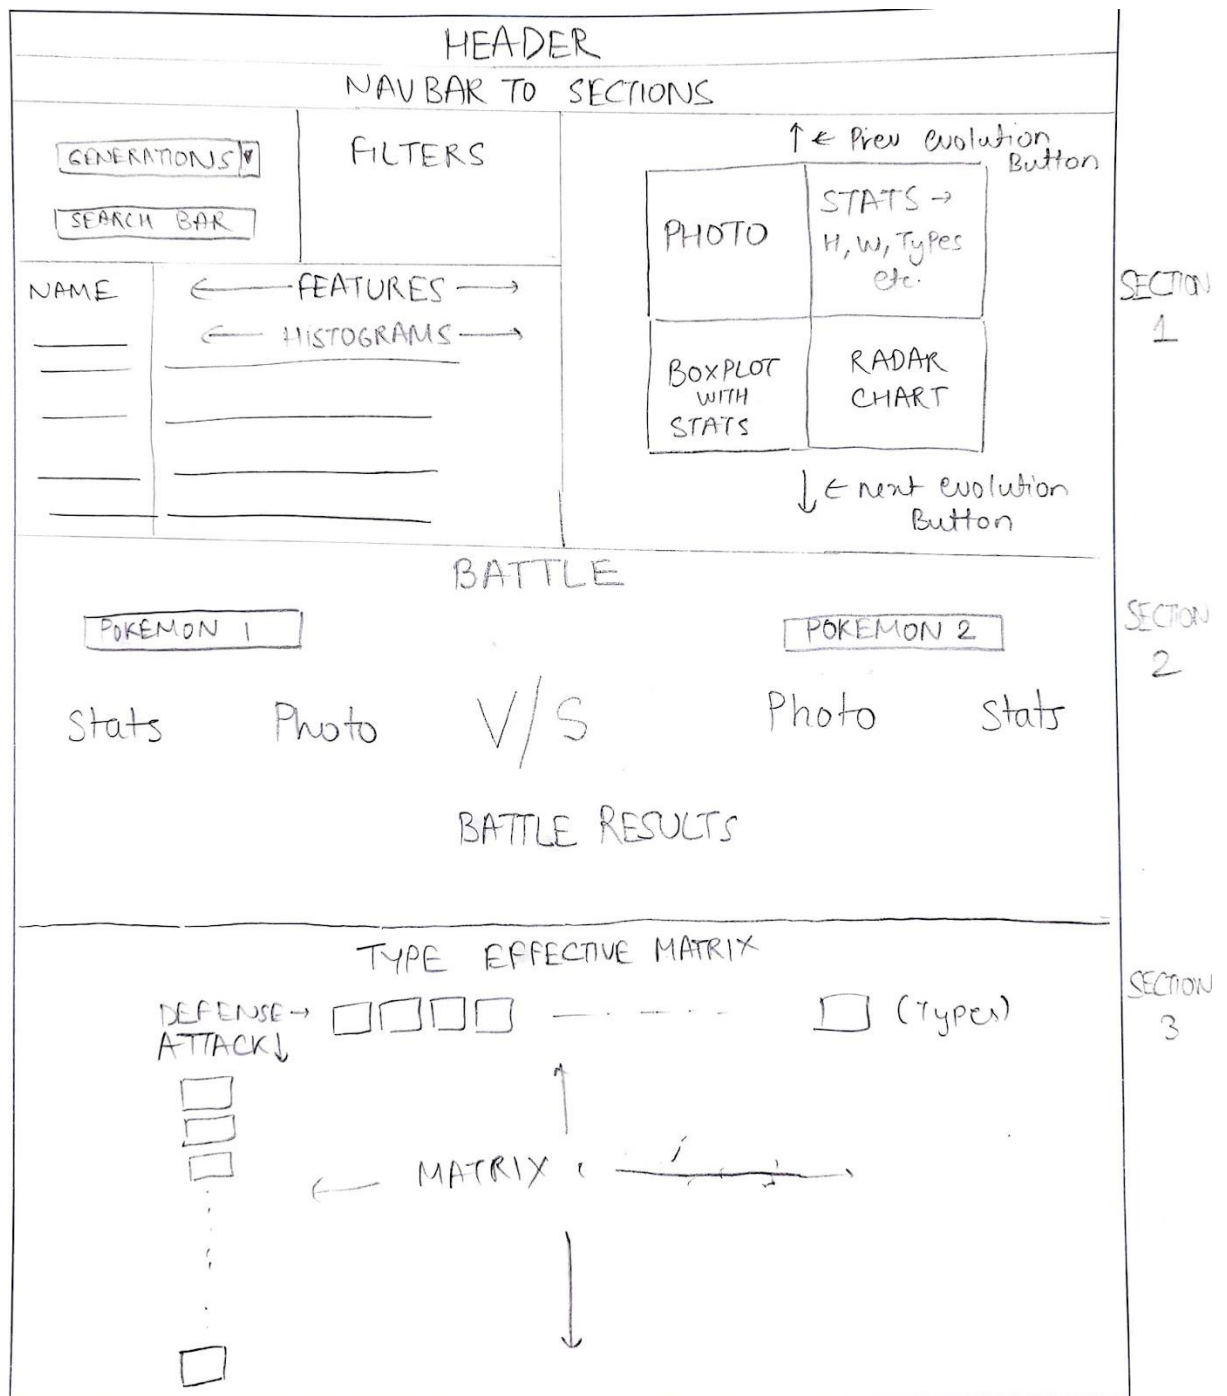 HEADER
NAVBAR TO SECTIONS
GENERATIONS
SEARCH BAR
FILTERS
NAME
← FEATURES →
← HISTOGRAMS →
↑ ← Prev evolution
Button
PHOTO
STATS →
H, W, Types
etc.
BOXPLOT
WITH
STATS
RADAR
CHART
↓ ← next evolution
Button
SECTION
1
BATTLE
POKEMON 1
POKEMON 2
Stats
Photo
V/S
Photo
Stats
BATTLE RESULTS
SECTION
2
TYPE EFFECTIVE MATRIX
DEFENSE →
ATTACK ↓
(Types)
← MATRIX
SECTION
3